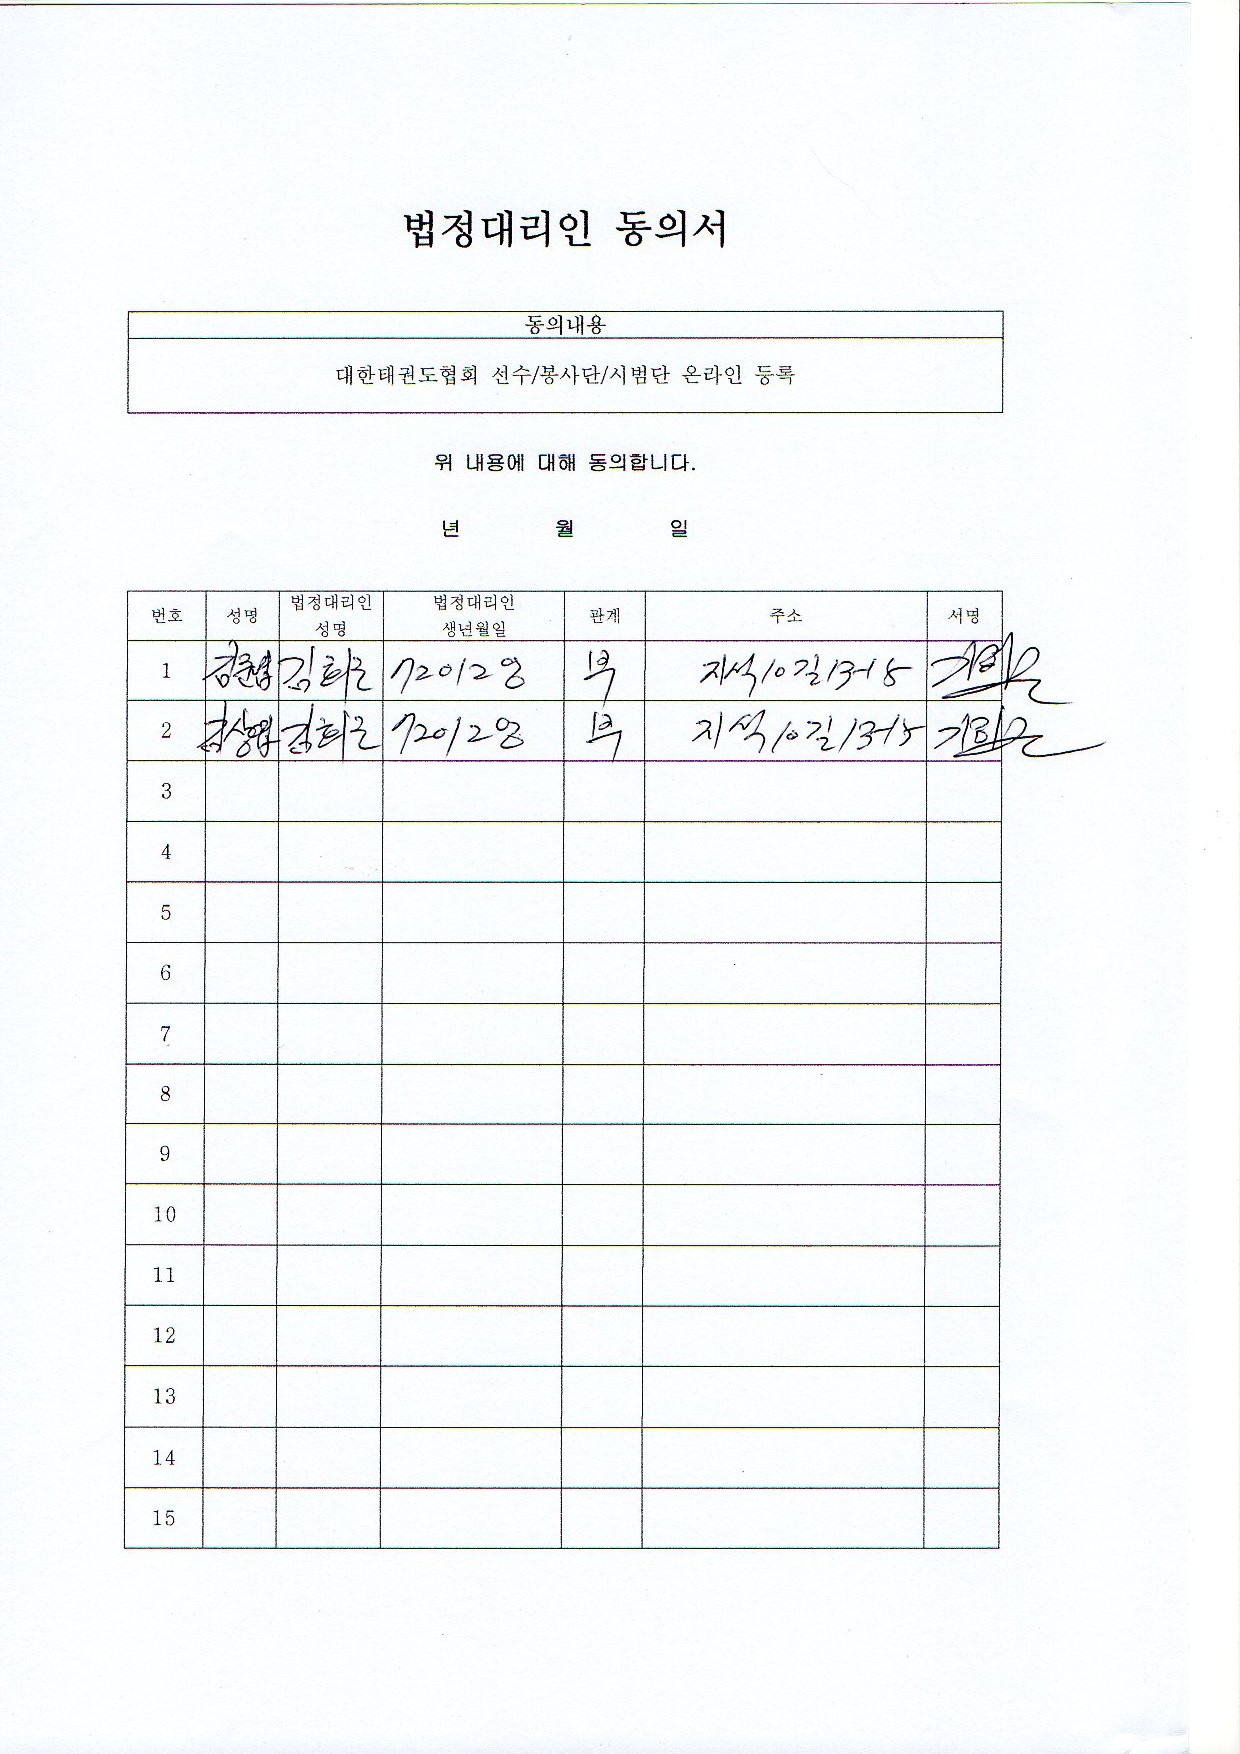 법정대리인 동의서
동의내용
대한태권도협회 선수/봉사단/시범단 온라인 등록
위 내용에 대해 동의합니다.
년 월 일
번호 성명 법정대리인 성명 법정대리인 생년월일 관계 주소 서명
1 김희근 부 지석10길13-15
2 김희근 부 지석10길13-15
3
4
5
6
7
8
9
10
11
12
13
14
15